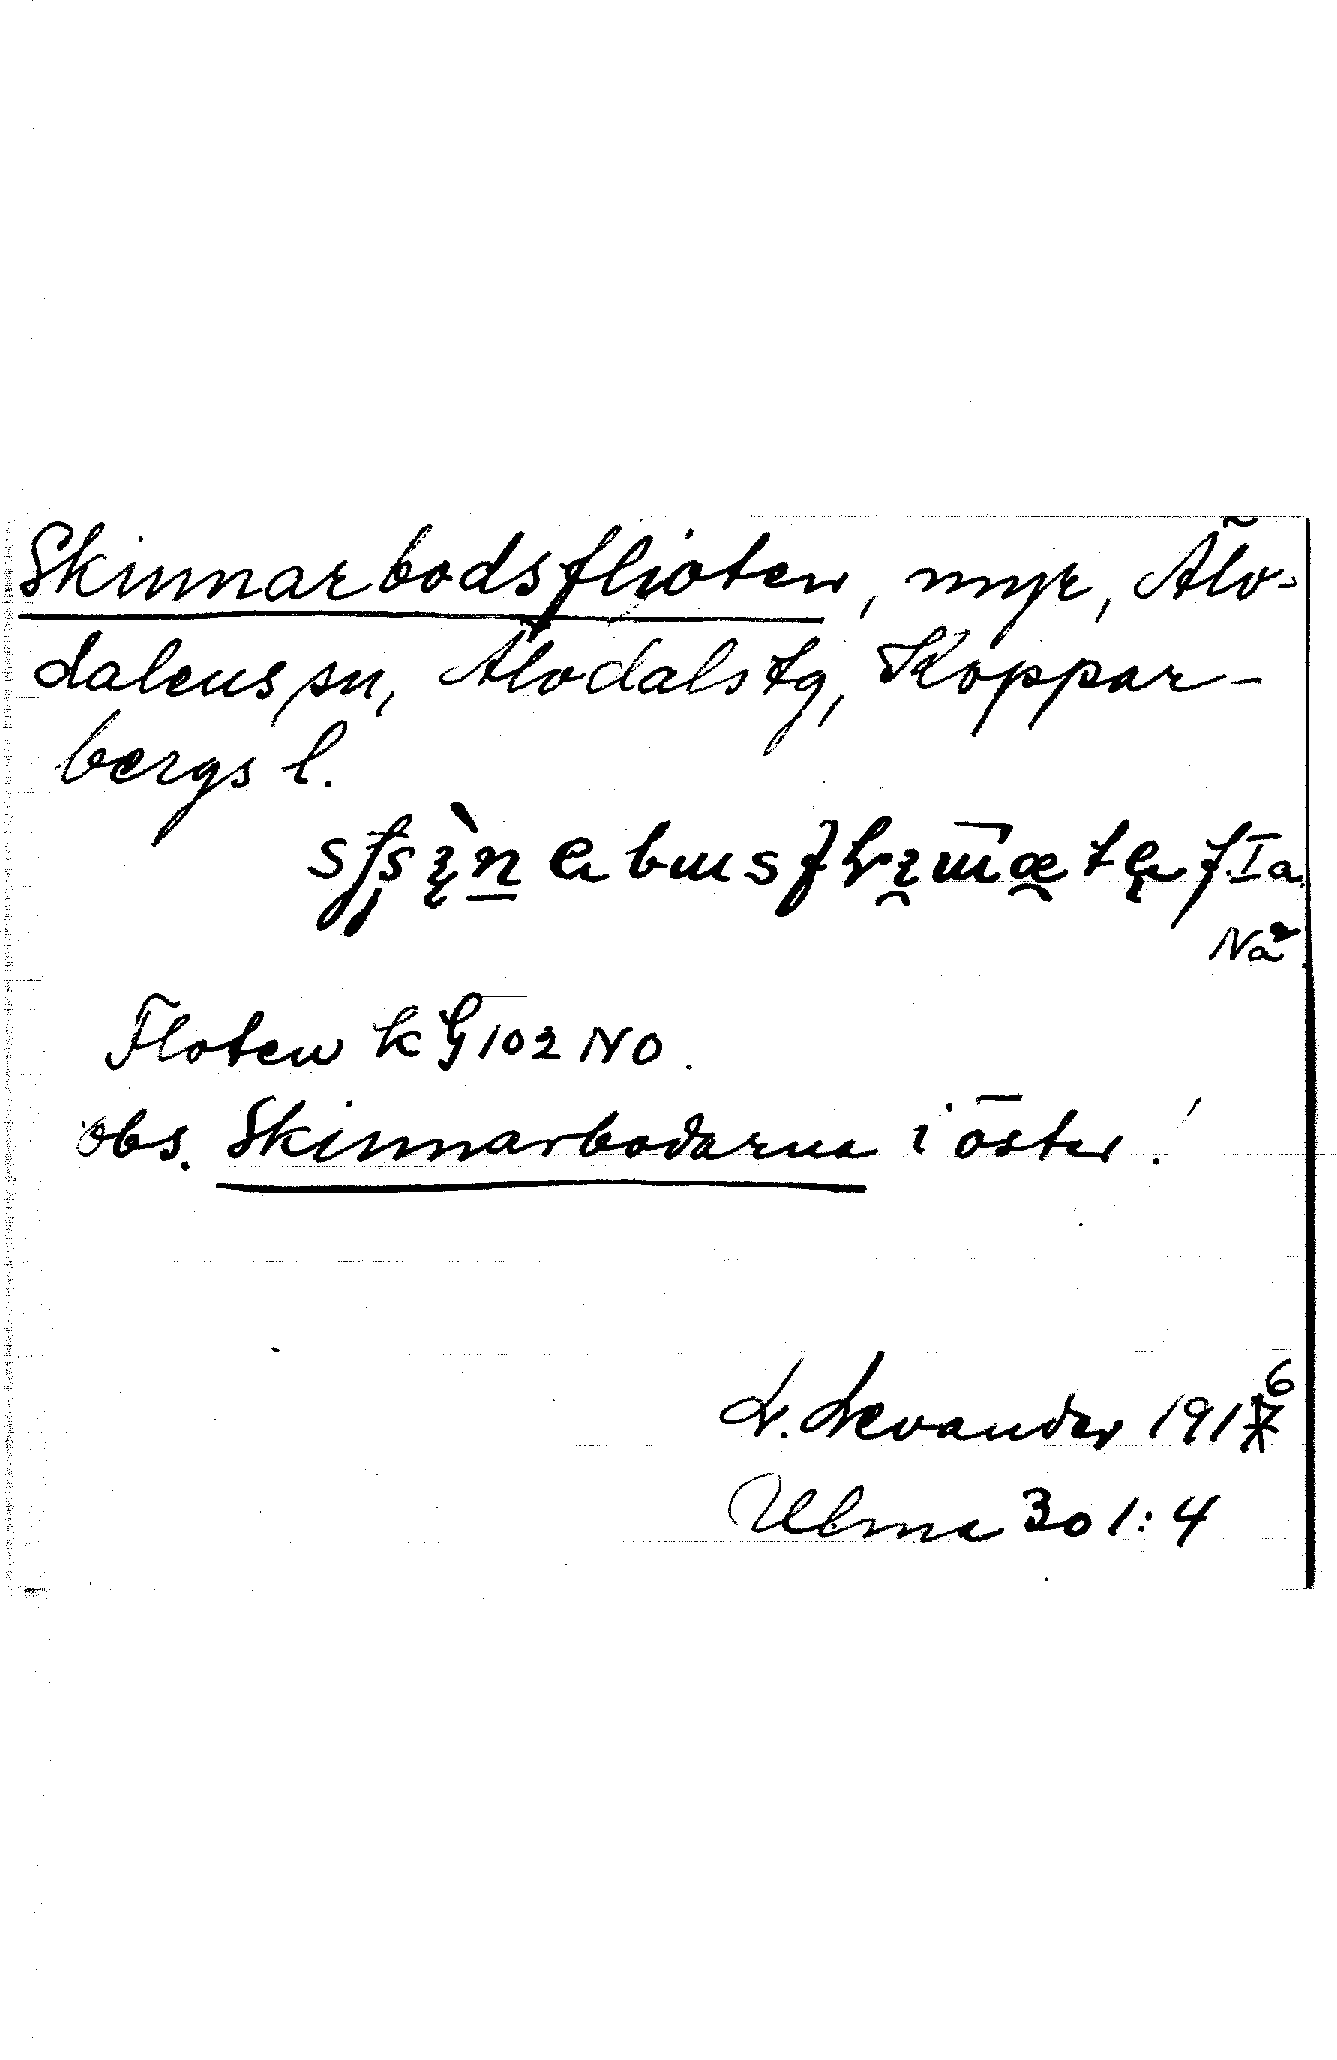 Skinnarbodsflioten, myr, Älv-
dalens sn, Älvdals tg, Koppar-
bergs l.
fIa
Floten k G 102 NO.
obs. Skinnarbodarna i öster!
L. Levander 1916
Ulma 301:4